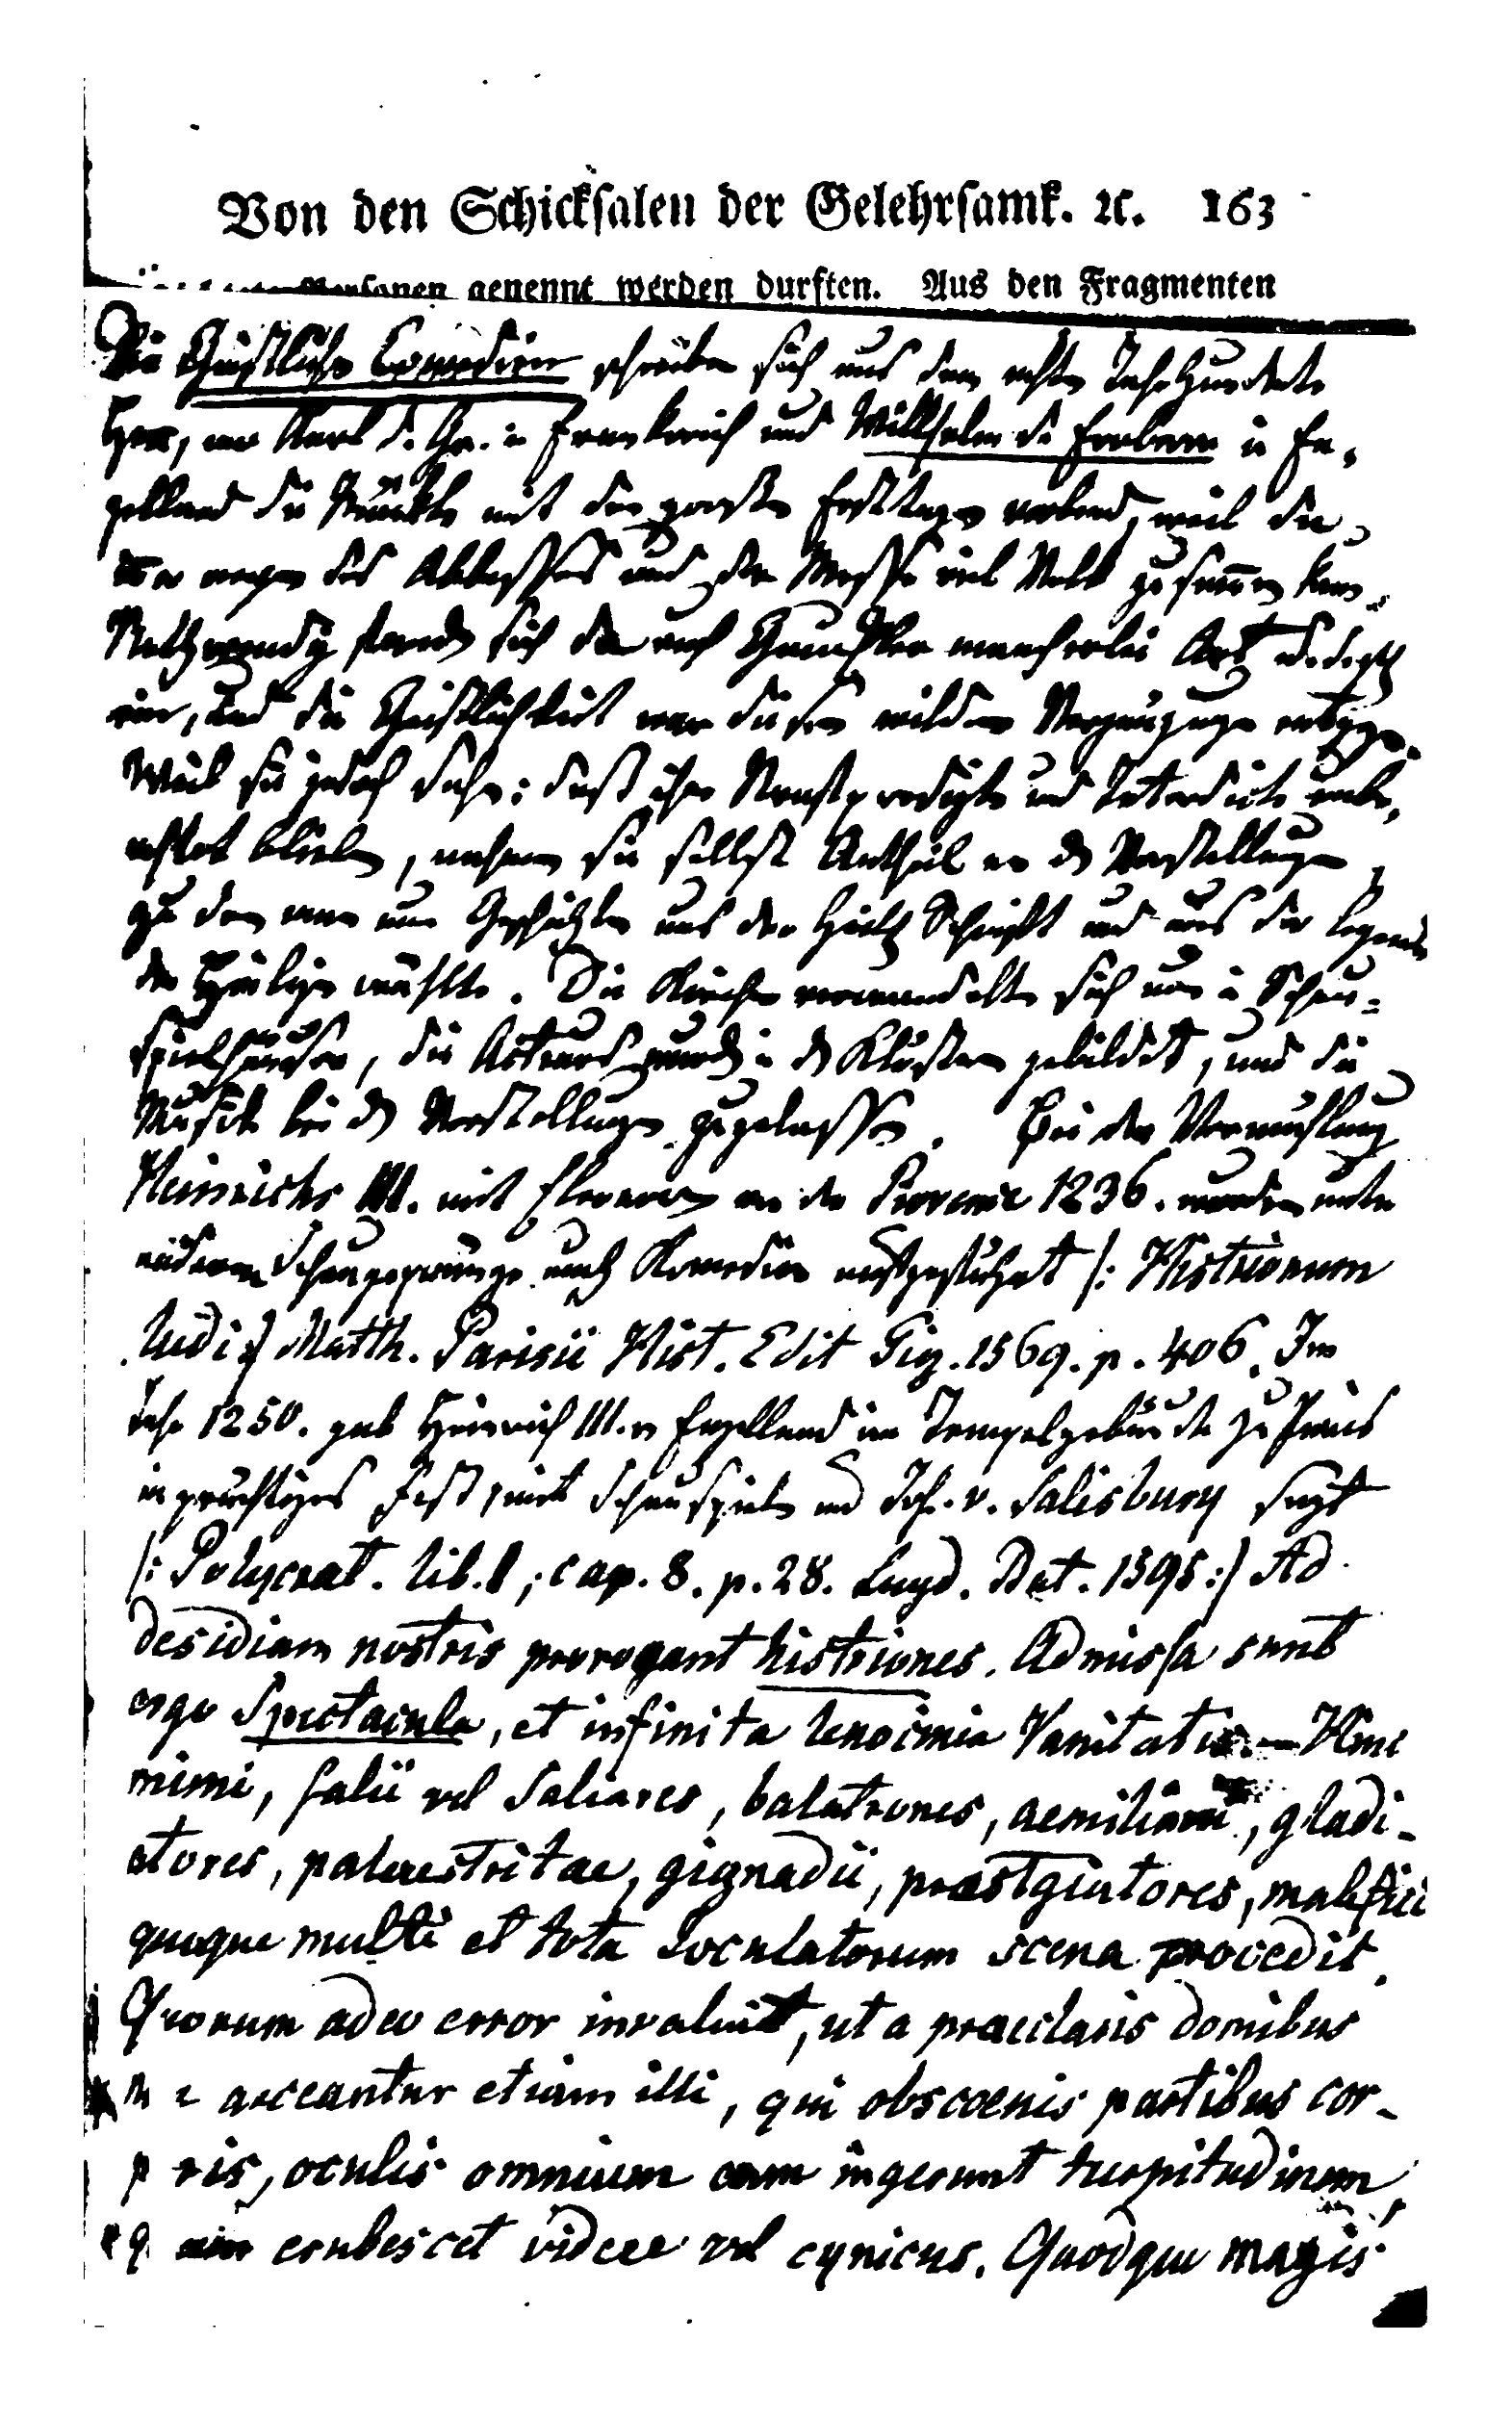 Von den Schicksalen der Gelehrsamk. ꝛc. 163
Personen genennt werden durften. Aus den Fragmenten
Die Geistliche Comedien schreiben sich aus dem achten Jahrhunderte
her, wo Karl d. Gr. in Frankreich und Willhelm der Eroberer in En-
gelland die Märkte mit den großen Festtagen verband, weil da
wegen des Ablasses und der Messe viel Volk zusam̄en kam.
Nothwendig fanden sich da auch Gauckler mancherlei Art
ein, und die Geistlichkeit war diesen wilden Vergnügungen entgegen.
Weil sie jedoch sahe: daß ihre Strafpredigten und Interdicte unbe-
achtet blieben, nahmen sie selbst Antheil an den Vorstellungen
zu den man nun Geschichten aus der Heil. Schrift und aus der Legende
der Heiligen wählte. Die Kirchen verwandelten sich nun in Schau-
spielhäuser, die Acteurs wurden in den Klöstern gebildet, und die
Musik bei den Vorstellungen zugelassen. Bei der Vermählung
Heinrichs III. mit Eleonoren von der Provence 1236. wurden unter
anderm Schaugepränge auch Komedien aufgeführt /: Histrionum
ludi :/ Matth. Parisii Hist. Edit Tig. 1569. p. 406. Im
Jahr 1250. gab Heinrich III. v Engelland im Tempelgebäude zu Paris
ein prächtiges Fest mit Schauspielen und Joh. v. Salisbury sagt
/: Polycrat. lib. I; cap. 8. p. 28. Lugd. Bat. 1595 :/ Ad
desidiam nostris prorogant histriones. Admissa sunt
ergo Spectacula, et infinita lenocinia Vanitatis. — Hinc
mimi, salii vel Saliares, balatrones, aemiliani, gladi-
atores, palaestritae, gignadii, praestgiatores, malefici
quoque multi et tota Joculatorum scena procedit.
Quorum adeo error invaluit, ut a praeclaris domibus
arceantur etiam illi, qui obscoenis partibus cor-
p ris, oculis omnium eam ingerunt turpitudinem,
erubescet videre vel cynicus. Quodque magis